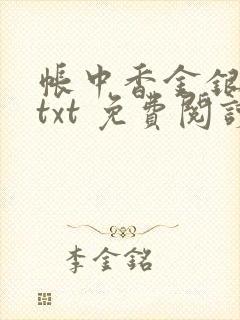 帳中香金銀
txt 免費閱讀
李金銘